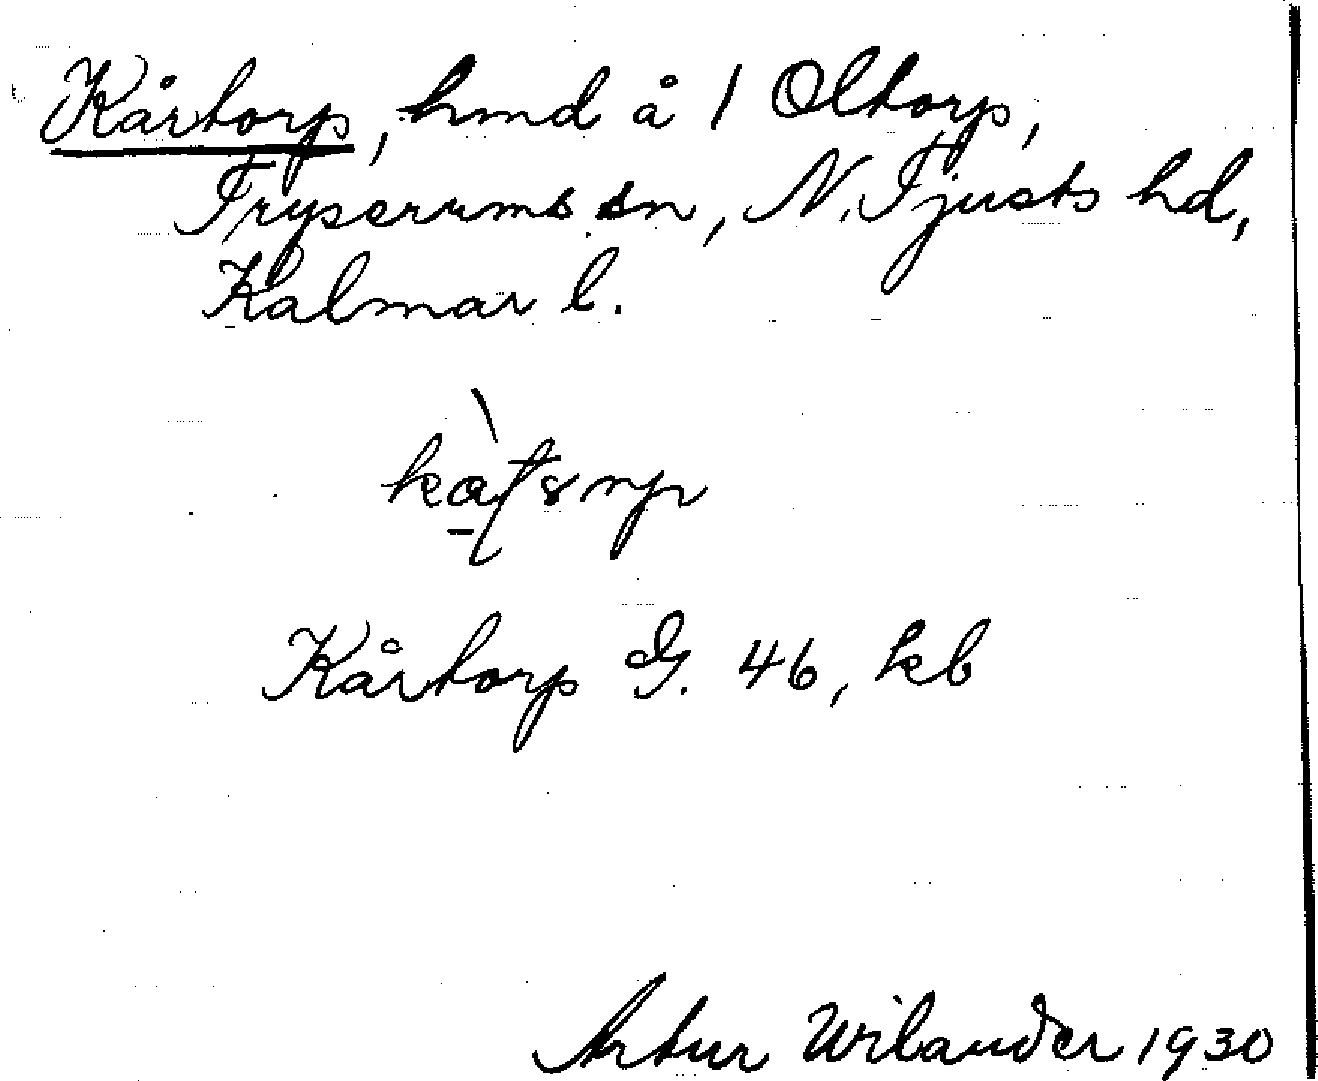 Kårtorp, hmd å 1 Oltorp,
Tryserums sn, N. Tjusts hd,
Kalmar l.
Kårtorp G. 46, kb
Artur Wilander 1930